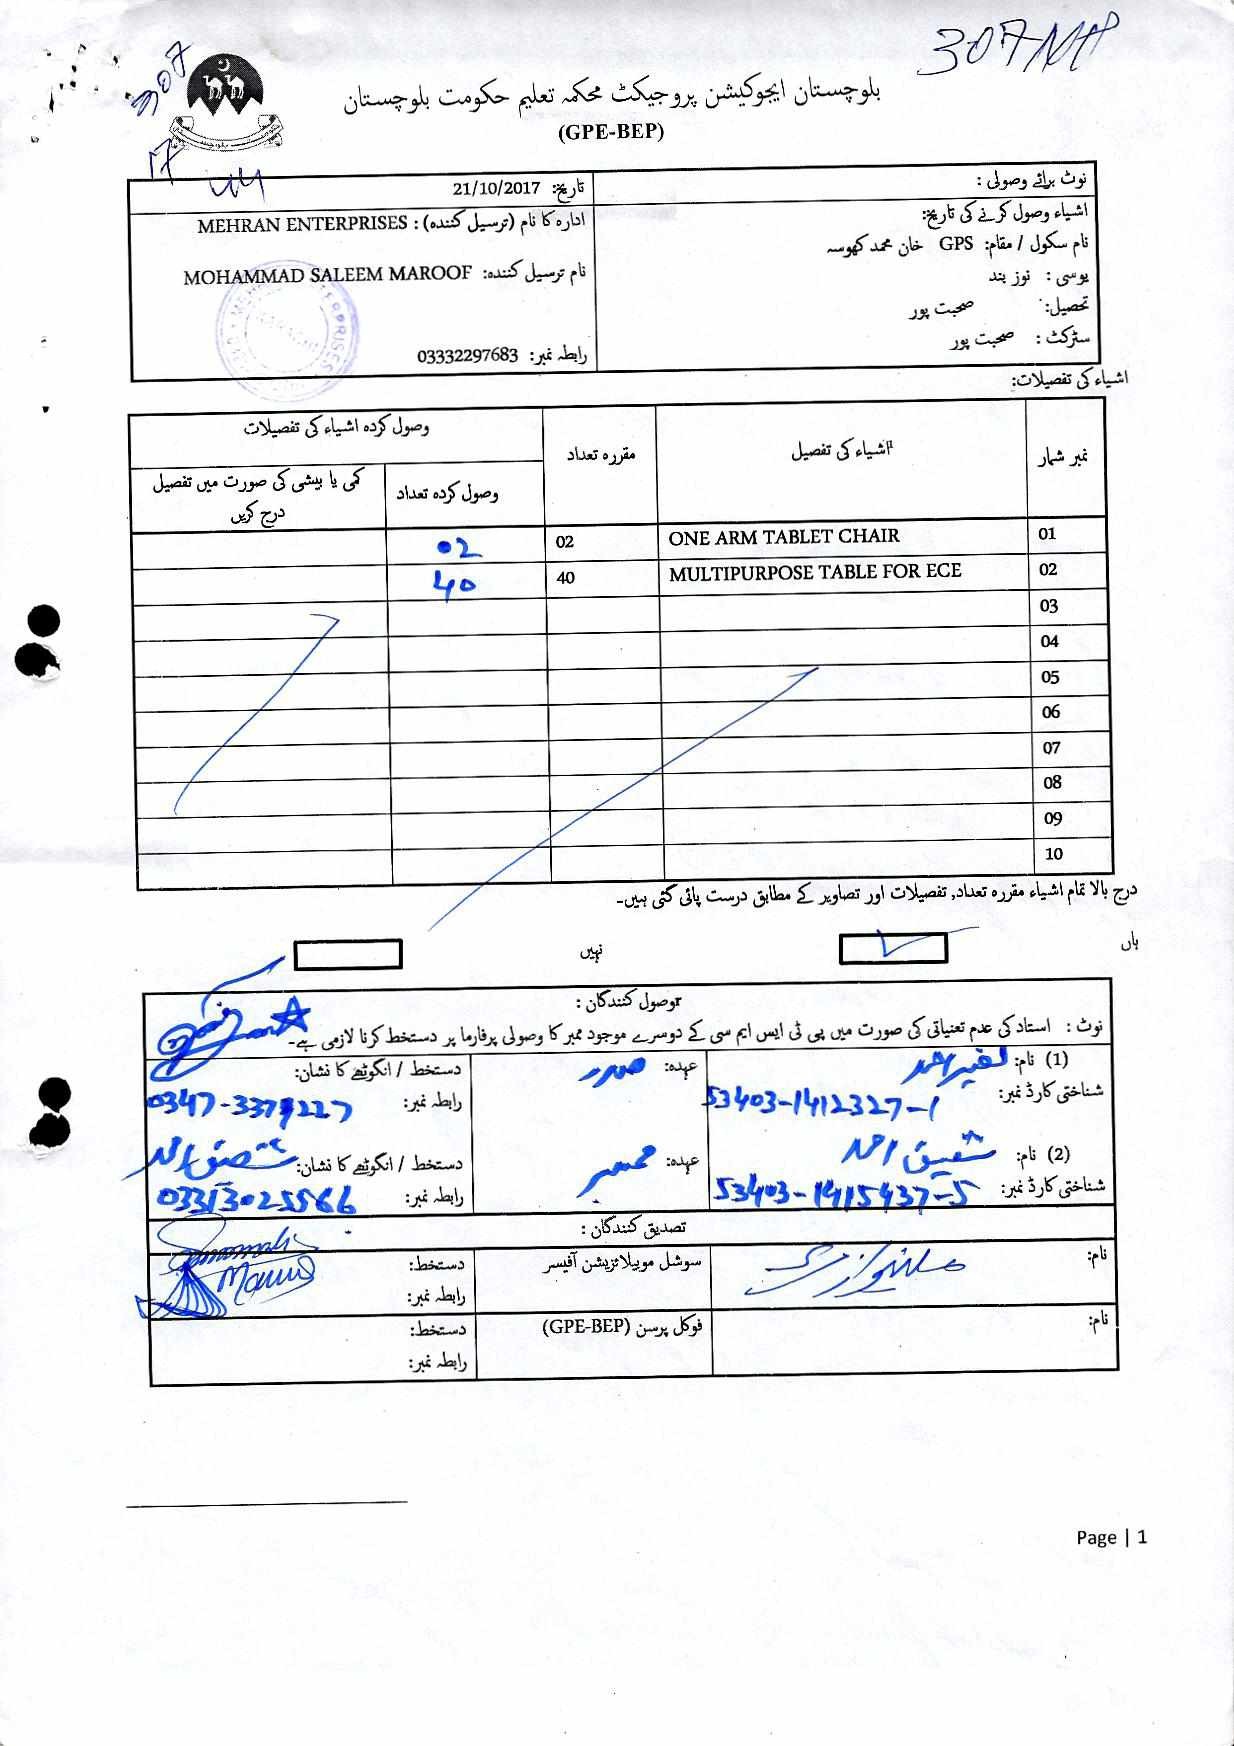 307 MP
307
17
بلوچستان ایجوکیشن پروجیکٹ محکمہ تعلیم حکومت بلوچستان
(GPE-BEP)
نوٹ برائے وصولی :
تاریخ: 21/10/2017
اشیاء وصول کرنے کی تاریخ:
نام سکول / مقام: GPS خان محمد کھوسہ
یوسی : نوز بند
تحصیل: صحبت پور
سٹرکٹ : صحبت پور
ادارہ کا نام (ترسیل کنندہ) : MEHRAN ENTERPRISES
نام ترسیل کنندہ: MOHAMMAD SALEEM MAROOF
رابطہ نمبر: 03332297683
اشیاء کی تفصیلات:
نمبر شمار اشیاء کی تفصیل مقررہ تعداد وصول کردہ اشیاء کی تفصیلات
وصول کردہ تعداد کمی یا بیشی کی صورت میں تفصیل درج کریں
01 ONE ARM TABLET CHAIR 02 02
02 MULTIPURPOSE TABLE FOR ECE 40 40
03
04
05
06
07
08
09
10
درج بالا تمام اشیاء مقررہ تعداد, تفصیلات اور تصاویر کے مطابق درست پائی گئی ہیں۔
ہاں نہیں
وصول کنندگان :
نوٹ : استاد کی عدم تعنیاتی کی صورت میں پی ٹی ایس ایم سی کے دوسرے موجود ممبر کا وصولی پرفارما پر دستخط کرنا لازمی ہے۔
(1) نام: عہدہ: صدر دستخط / انگوٹھے کا نشان:
شناختی کارڈ نمبر: 53403-1412327-1 رابطہ نمبر: 0347-3379227
(2) نام: شفیق احمد عہدہ: ممبر دستخط / انگوٹھے کا نشان:
شناختی کارڈ نمبر: 53403-1415937-5 رابطہ نمبر: 03313025566
تصدیق کنندگان :
نام: سوشل موبیلائزیشن آفیسر دستخط:
رابطہ نمبر:
نام: فوکل پرسن (GPE-BEP) دستخط:
رابطہ نمبر:
Page | 1